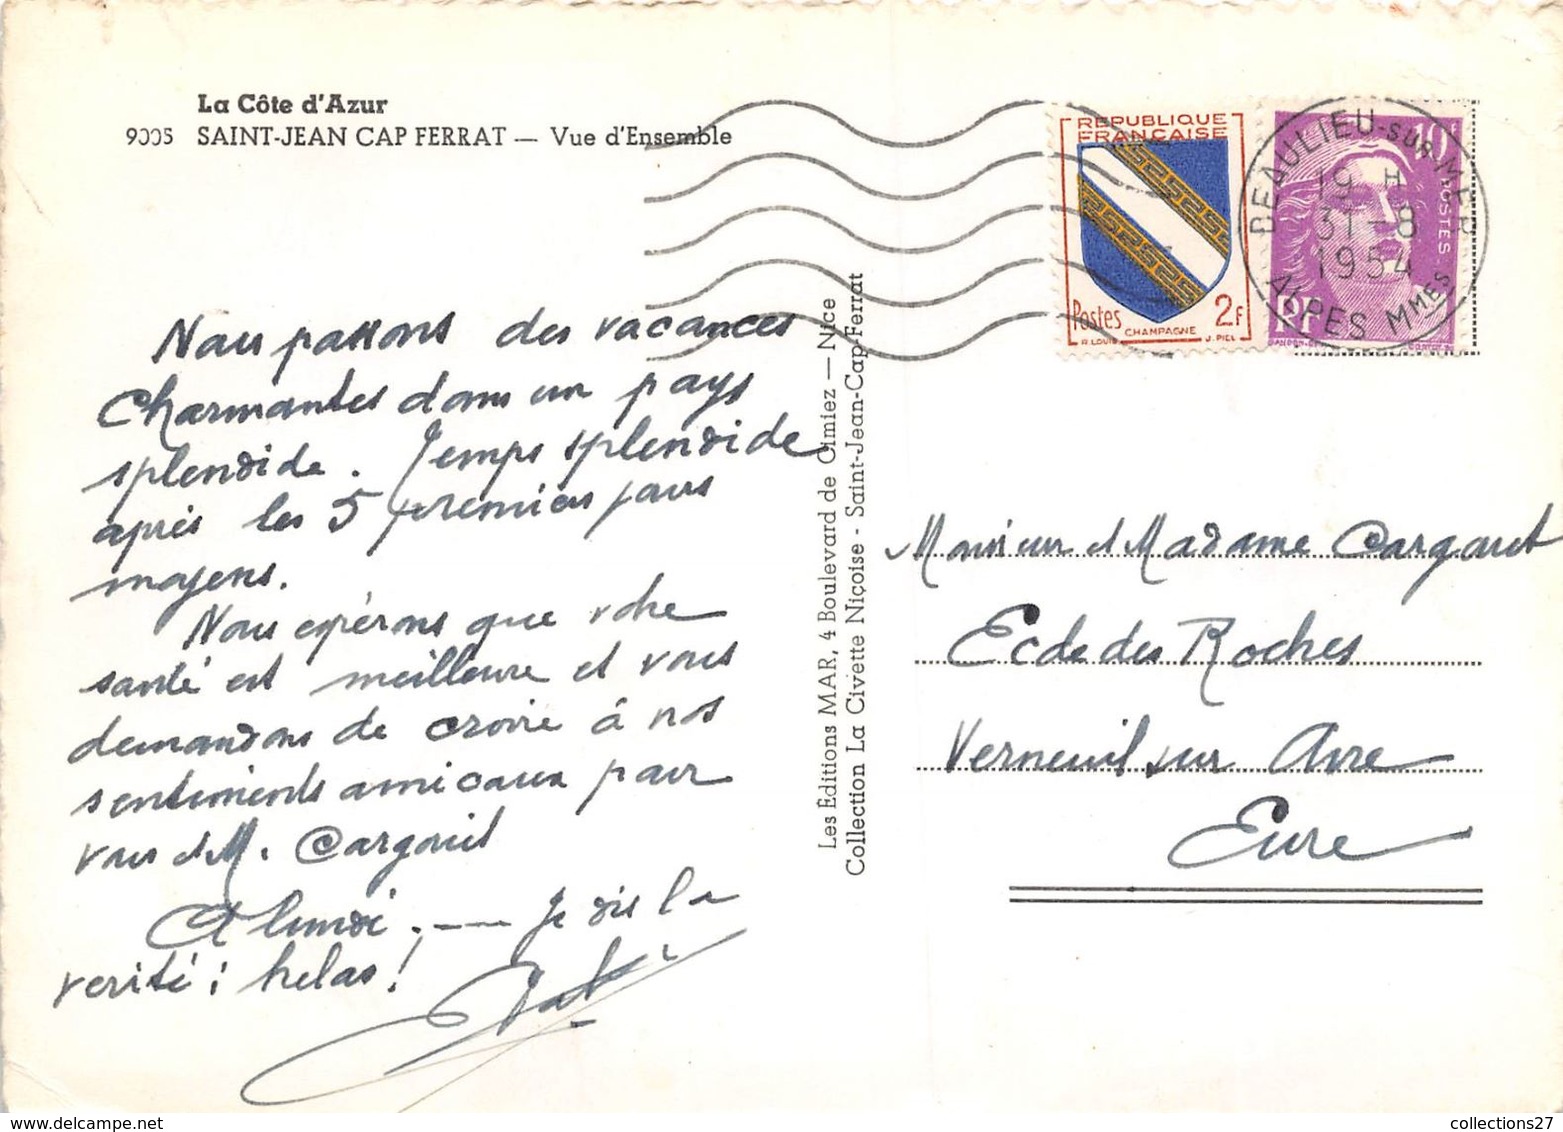 La Côte d'Azur
9005 SAINT-JEAN CAP FERRAT — Vue d'Ensemble
Nous passons des vacances
charmantes dans un pays
splendide. Temps splendide
après les 5 premiers jours
moyens.
Nous espérons que votre
santé est meilleure et vous
demandons de croire à nos
sentiments amicaux pour
vous et M. Cargouet
A lundi. — Je dis la
vérité : helas !
Les Editions MAR, 4 Boulevard de Cimiez — Nice
Collection La Civette Niçoise - Saint-Jean-Cap-Ferrat
REPUBLIQUE
FRANÇAISE
Postes 2F
CHAMPAGNE
R. LOUIS J. PIEL
10F
POSTES
RF
GANDON
BEAULIEU-SUR-MER
19 H
31-8
1954
ALPES MMES
Monsieur et Madame Cargouet
Ecole des Roches
Verneuil sur Avre
Eure
collections27